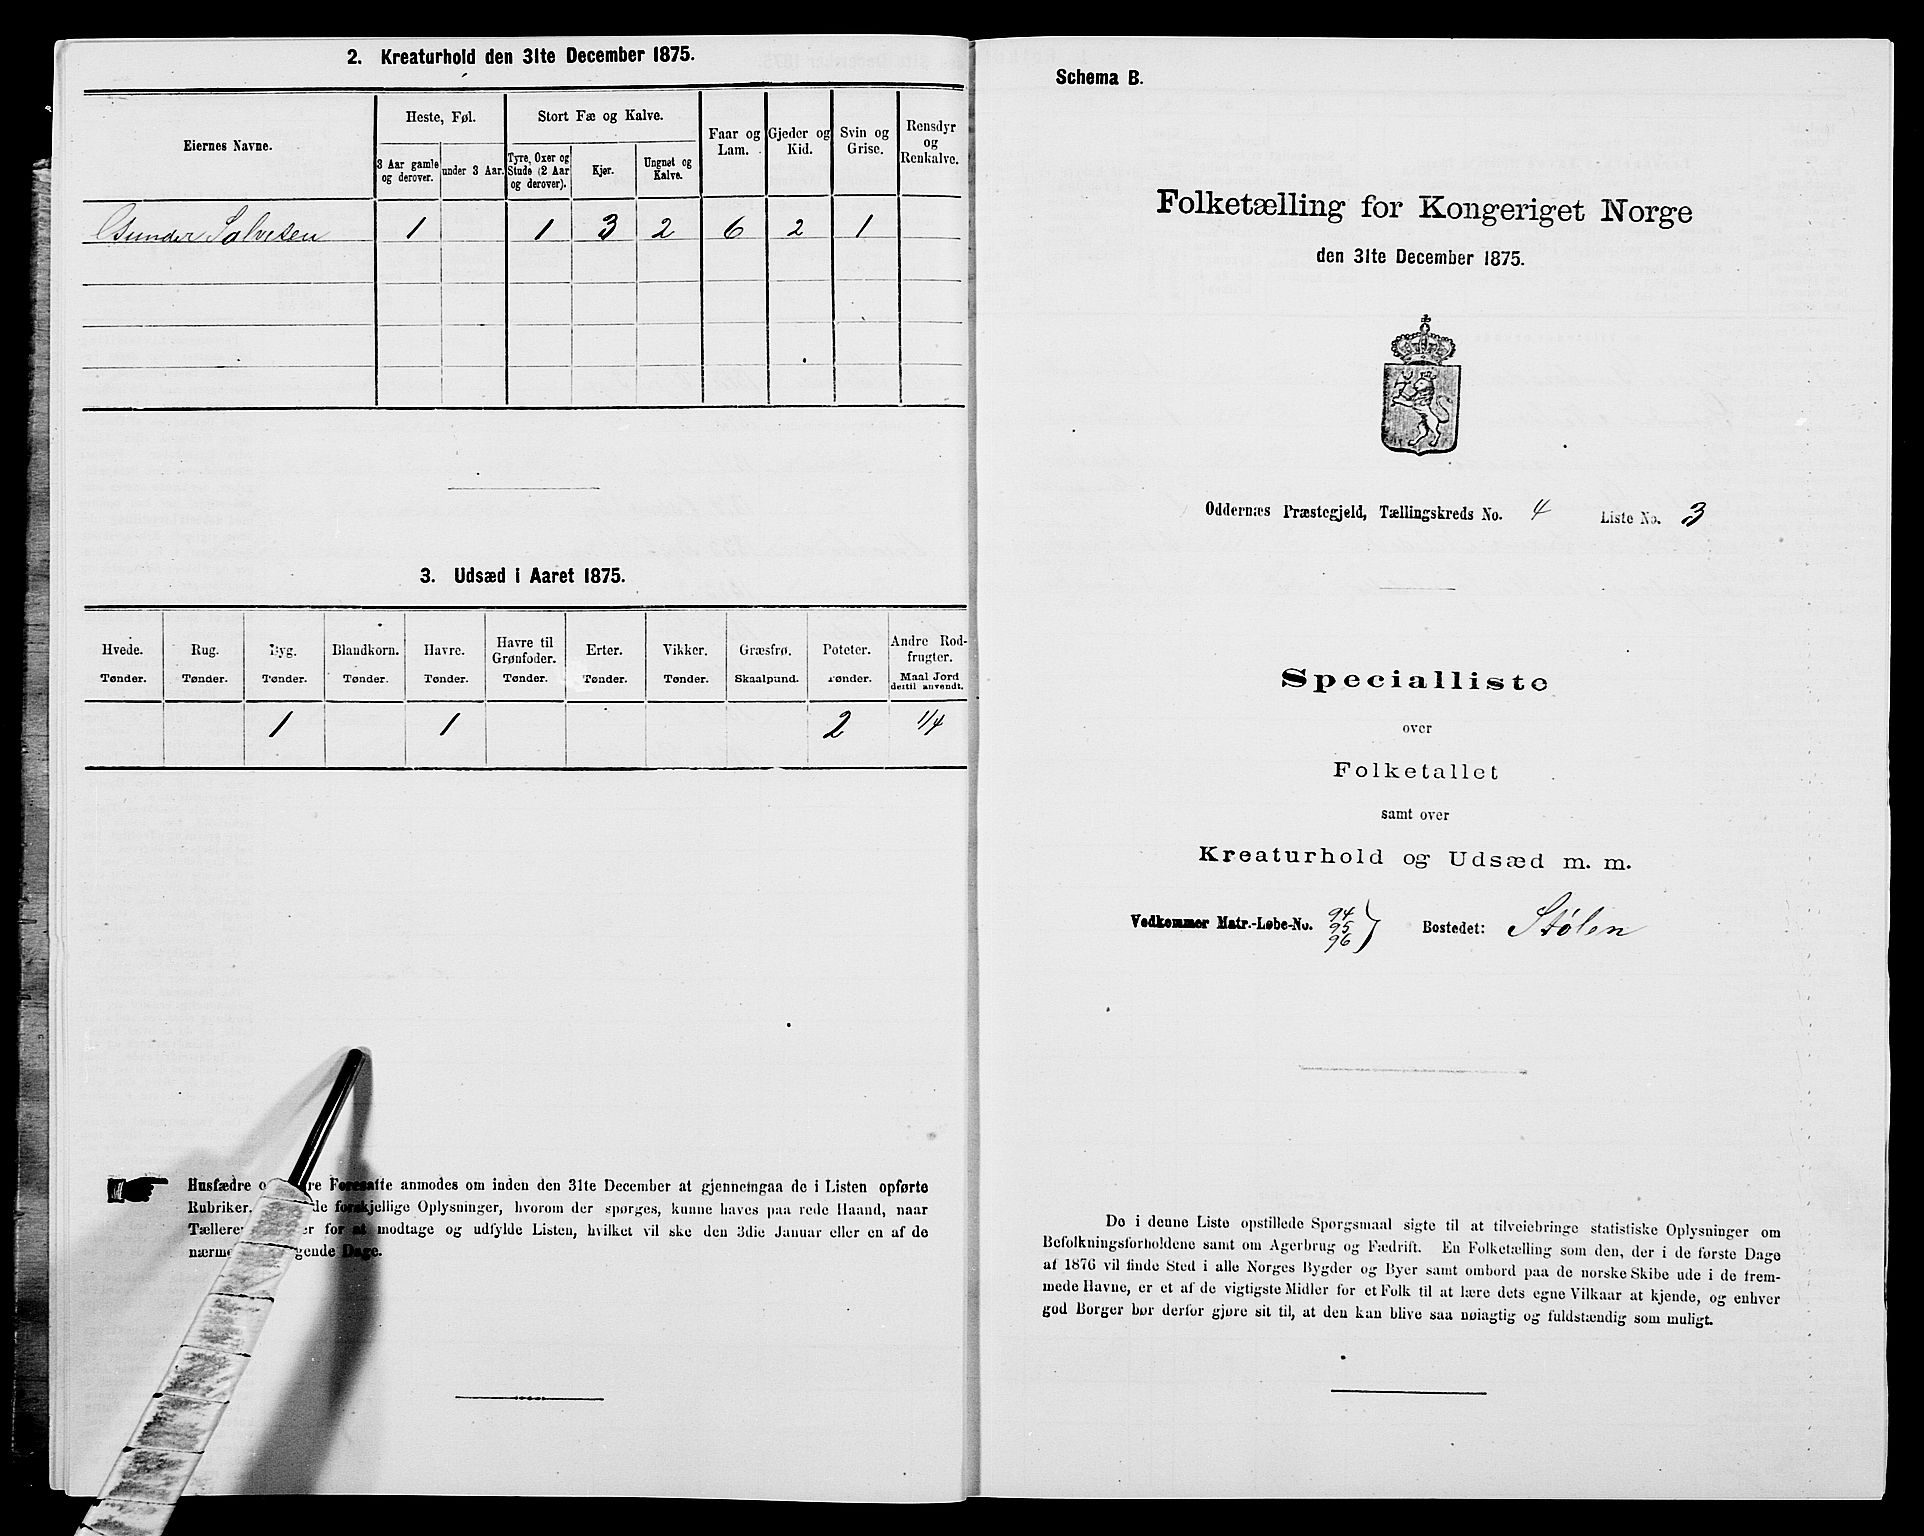 2. Kreaturhold den 31te December 1875.
Eiernes Navne.
Heste, Føl.
3 Aar gamle og derover.
under 3 Aar.
Stort Fæ og Kalve.
Tyre, Oxer og Stude (2 Aar og derover).
Kjør.
Ungnøt og Kalve.
Faar og Lam.
Gjeder og Kid.
Svin og Grise.
Rensdyr og Renkalve.
Gunder Salvesen 1 1 3 2 6 2 1
3. Udsæd i Aaret 1875.
Hvede. Rug. Byg. Blandkorn. Havre. Havre til Grønfoder. Erter. Vikker. Græsfrø. Poteter. Andre Rodfrugter.
Tønder. Tønder. Tønder. Tønder. Tønder. Tønder. Tønder. Tønder. Skaalpund. Tønder. Maal Jord dertil anvendt.
1 1 2 1/4
Husfædre o re Foresatte anmodes om inden den 31te December at gjennemgaa de i Listen opførte
Rubriker. de forskjellige Oplysninger, hvorom der spørges, kunne haves paa rede Haand, naar
Tælleren er for at modtage og udfylde Listen, hvilket vil ske den 3die Januar eller en af de
nærm gende Dage.
Schema B.
Folketælling for Kongeriget Norge
den 31te December 1875.
Oddernæs Præstegjeld, Tællingskreds No. 4 Liste No. 3
Specialliste
over
Folketallet
samt over
Kreaturhold og Udsæd m. m.
Vedkommer Matr.-Løbe-No. 94 95 96 } Bostedet: Stølen
De i denne Liste opstillede Spørgsmaal sigte til at tilveiebringe statistiske Oplysninger om
Befolkningsforholdene samt om Agerbrug og Fædrift. En Folketælling som den, der i de første Dage
af 1876 vil finde Sted i alle Norges Bygder og Byer samt ombord paa de norske Skibe ude i de frem-
mede Havne, er et af de vigtigste Midler for et Folk til at lære dets egne Vilkaar at kjende, og enhver
god Borger bør derfor gjøre sit til, at den kan blive saa nøiagtig og fuldstændig som muligt.